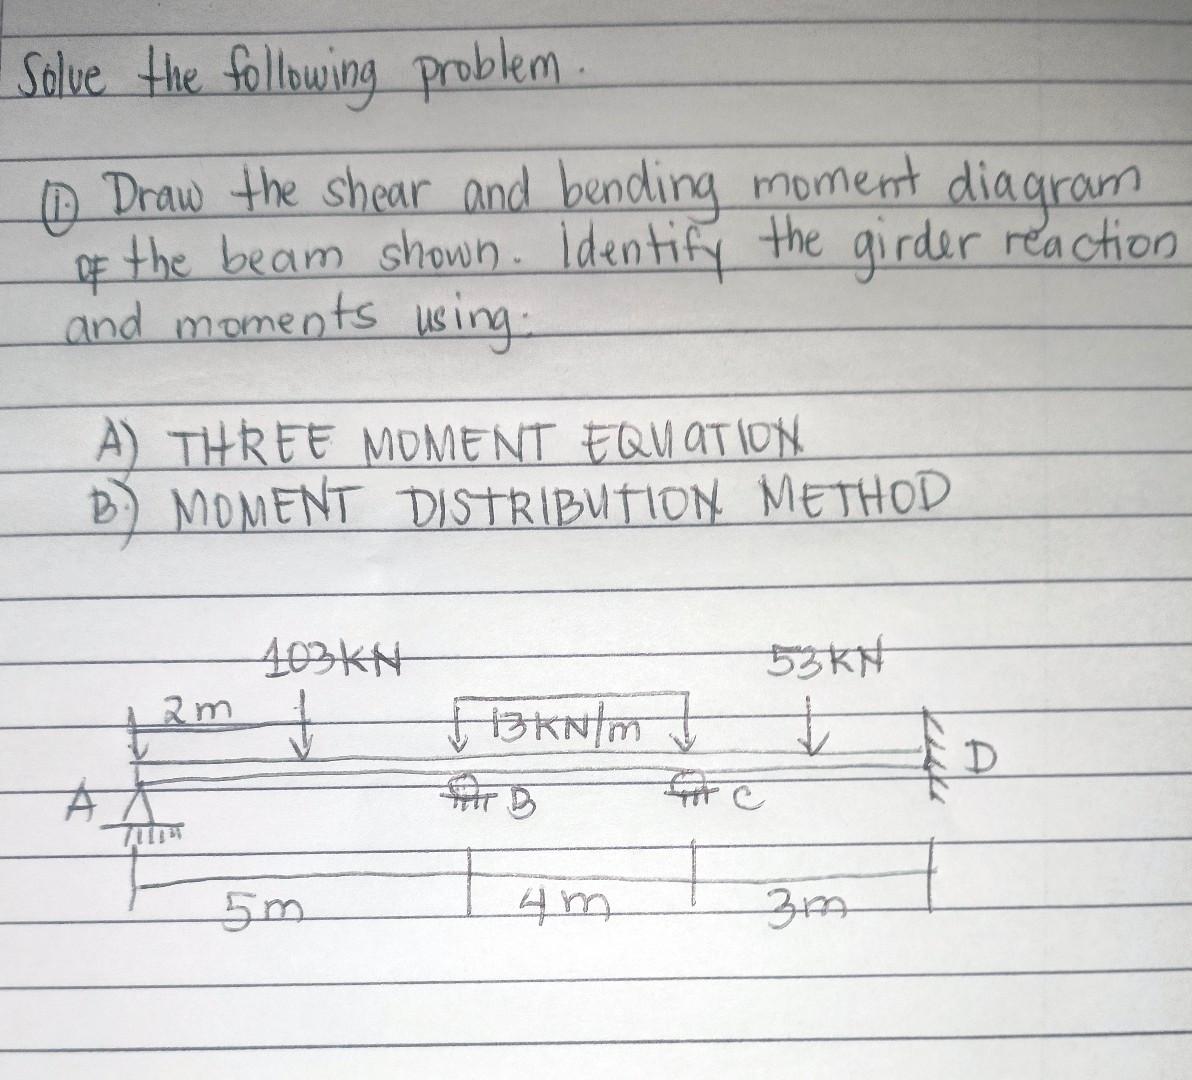 Solve the following problem.
① Draw the shear and bending moment diagram
of the beam shown. Identify the girder reaction
and moments using:
A) THREE MOMENT EQUATION
B.) MOMENT DISTRIBUTION METHOD
103KN 53KN
2m 13KN/m
D
A B C
5m 4m 3m